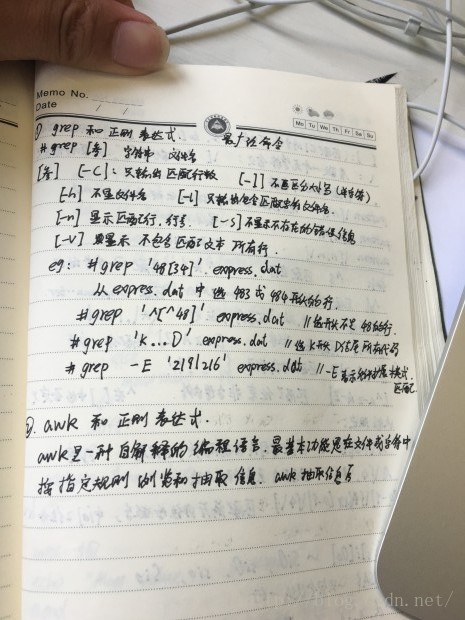 Memo No.
Date / /
Mo Tu We Th Fr Sa Su
① grep 和正则表达式. 最广泛命令
# grep [条] 字符串 文件名
[条] [-C]: 只输出匹配行数 [-I] 不区分大小写(单字符)
[-h] 不显文件名 [-l] 只输出包含匹配字符的文件名.
[-n] 显示匹配行,行号. [-s] 不显示不存在的错误信息
[-V] 显示 不包含匹配文本 所有行.
eg: #grep '48[34]' express.dat
从 express.dat 中选 483 或 484 开头的行.
#grep '^[^48]' express.dat //选开头不是48的行.
#grep 'K...D' express.dat //选K开头D结尾所有代码
#grep -E '219|216' express.dat // -E 表示 扩展 模式
匹配
②. awk 和正则表达式.
awk是一种自解释的编程语言.最基本功能是在文件或字符串中
按指定规则浏览和抽取信息. awk抽取信息后
http://blog.csdn.net/